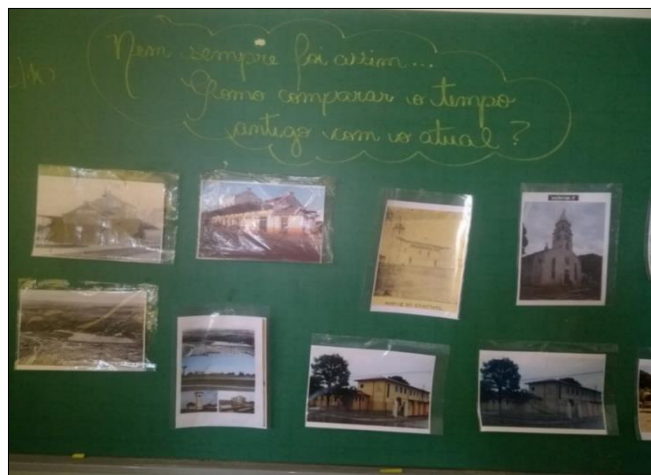 Nem sempre foi assim...
Como comparar o tempo
antigo com o atual?